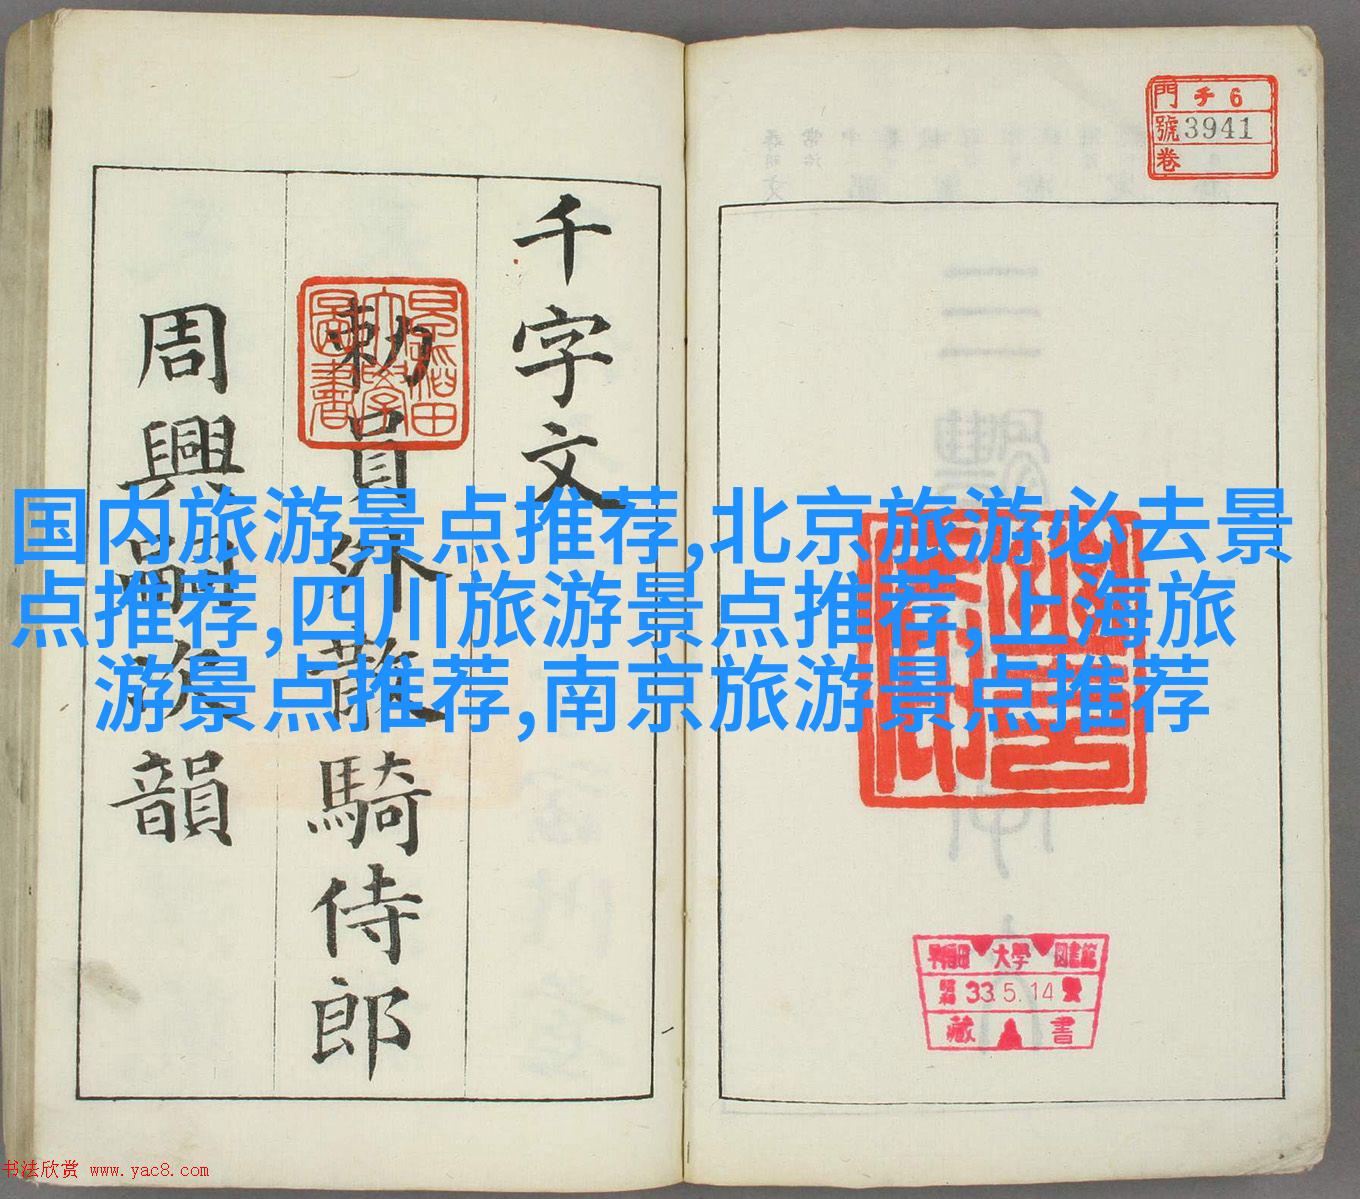 千字文
勅員外散騎侍郎
周興嗣次韻
門 チ 6
號 3941
卷
国内旅游景点推荐,北京旅游必去景
点推荐,四川旅游景点推荐,上海旅
游景点推荐,南京旅游景点推荐
早稻田大學圖書
早稻田 大學 図書館
33.5.14
藏 書
书法欣赏 www.yac8.com